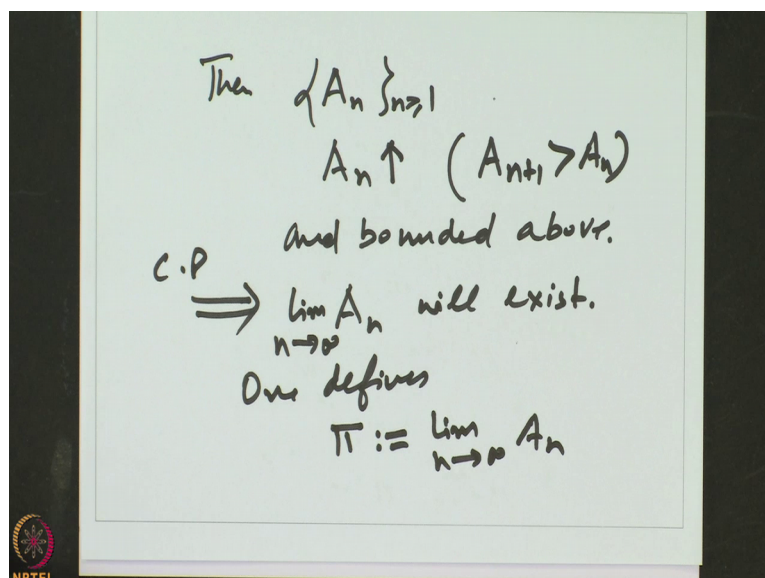 Then {A_n}_{n≥1}
A_n ↑ (A_{n+1} > A_n)
and bounded above.
C.P
⟹ lim_{n→∞} A_n will exist.
One defines
π := lim_{n→∞} A_n
NPTEL